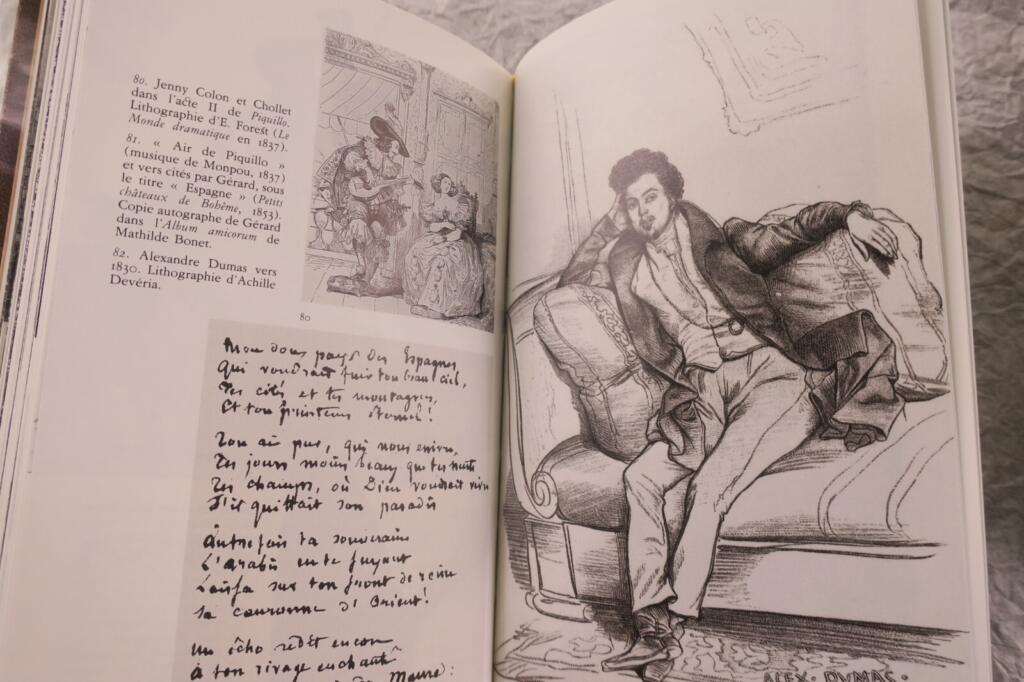 80. Jenny Colon et Chollet
dans l'acte II de Piquillo.
Lithographie d'E. Forest (Le
Monde dramatique en 1837).
81. « Air de Piquillo »
(musique de Monpou, 1837)
et vers cités par Gérard, sous
le titre « Espagne » (Petits
châteaux de Bohême, 1853).
Copie autographe de Gérard
dans l'Album amicorum de
Mathilde Bonet.
82. Alexandre Dumas vers
1830. Lithographie d'Achille
Devéria.
80
Mon doux pays des Espagnes
Qui voudrait fuir ton beau ciel,
Tes cités et tes montagnes,
Et ton printems éternel !
Ton air pur, qui nous enivre,
Tes jours moins beaux que tes nuits
Tes champs, où Dieu voudrait vivre
S'il quittait son paradis
Autrefois ta souveraine
L'arabie en te fuyant
Laissa sur ton front de reine
Sa couronne d'Orient !
Un écho redit encore
à ton rivage enchanté
Maure :
ALEX · DUMAS ·